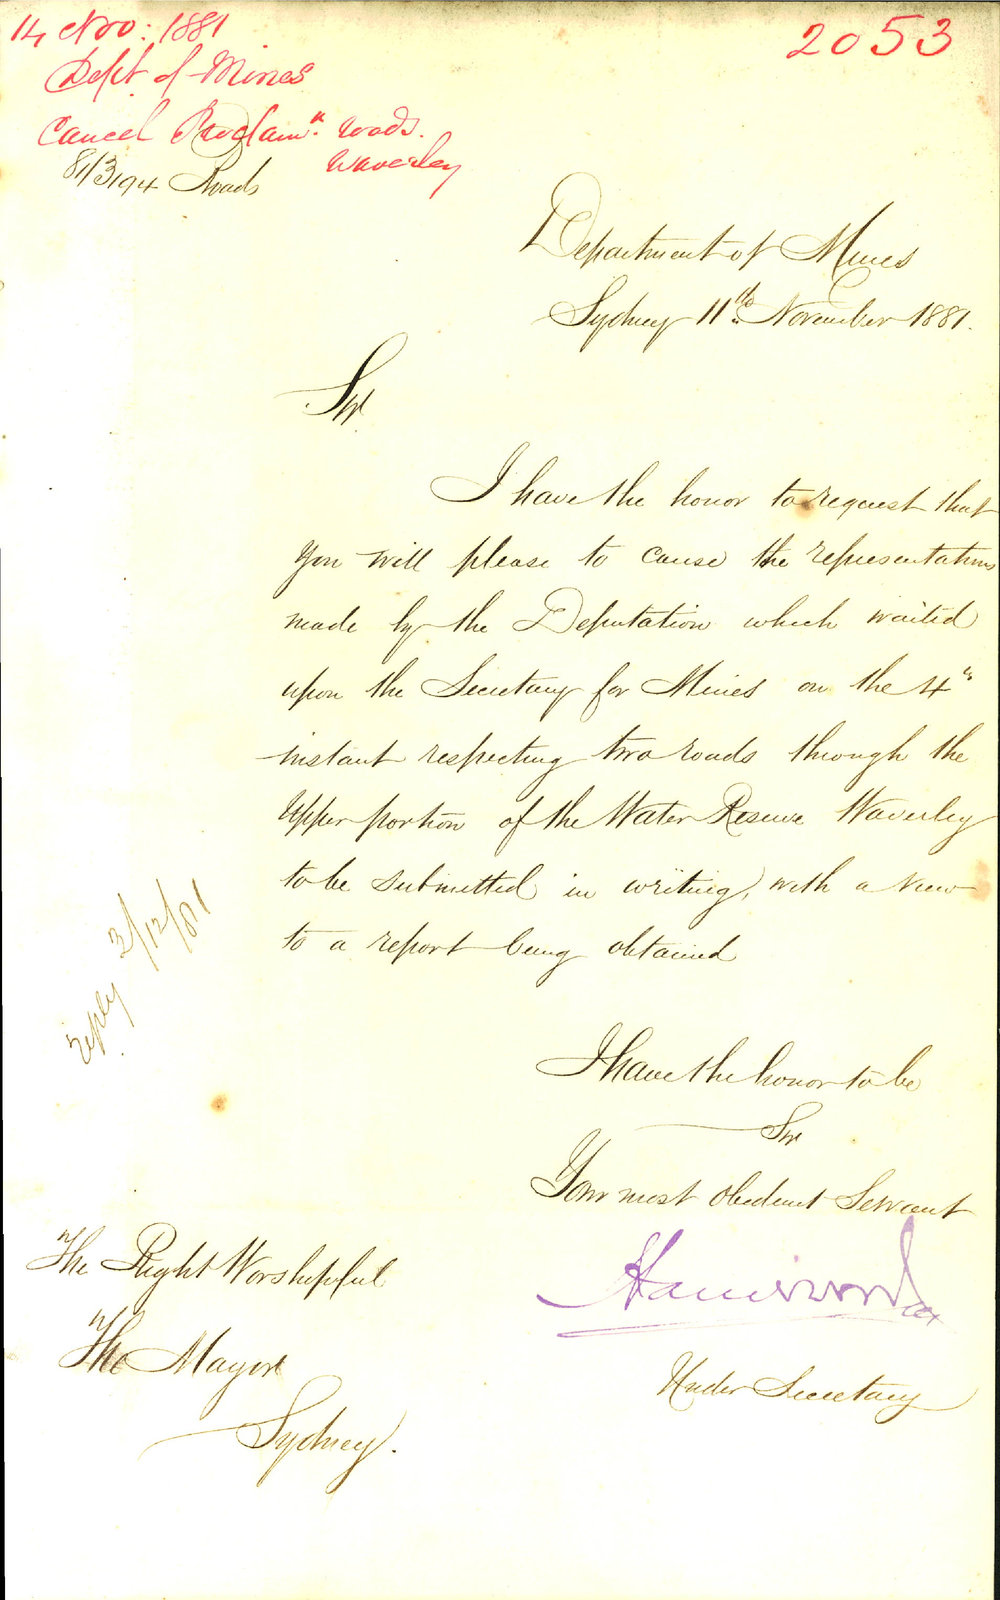 14 Nov: 1881
2053
Dept. of Mines
Cancel Proclamn. roads.
Waverley
81/3194 Roads
Department of Mines
Sydney 11th November 1881.
Sir
I have the honor to request that
you will please to cause the representations
made by the Deputation which waited
upon the Secretary for Mines on the 4th
instant respecting two roads through the
Upper portion of the Water Reserve Waverley
to be submitted in writing, with a view
to a report being obtained
reply 3/12/81
I have the honor to be
Sir
Your most obedient Servant
Under Secretary
The Right Worshipful
The Mayor
Sydney.